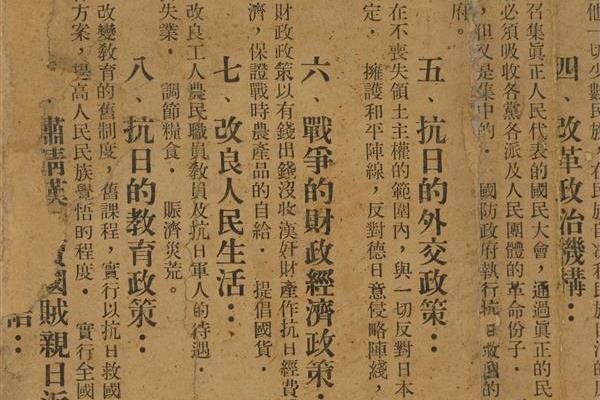 他一切少數民族，在民族自決和民族自治的原
四、改革政治機構：
召集眞正人民代表的國民大會，通過眞正的民
必須吸收各黨各派及人民團體的革命份子．
，但又是集中的．國防政府執行抗日救國的
府。
五、抗日的外交政策：
在不喪失領土主權的範圍內，與一切反對日本
定．擁護和平陣線，反對德日意侵略陣綫，
六、戰爭的財政經濟政策．
財政政策以有錢出錢沒收漢奸財產作抗日經費
濟，保證戰時農產品的自給．提倡國貨．
七、改良人民生活：
改良工人農民職員敎員及抗日軍人的待遇．
失業．調節糧食．賑濟災荒。
八、抗日的敎育政策：
改變敎育的舊制度，舊課程，實行以抗日救國
方案，堪高人民民族覺悟的程度．實行全國
肅淸漢 賣國賊親日派
結：